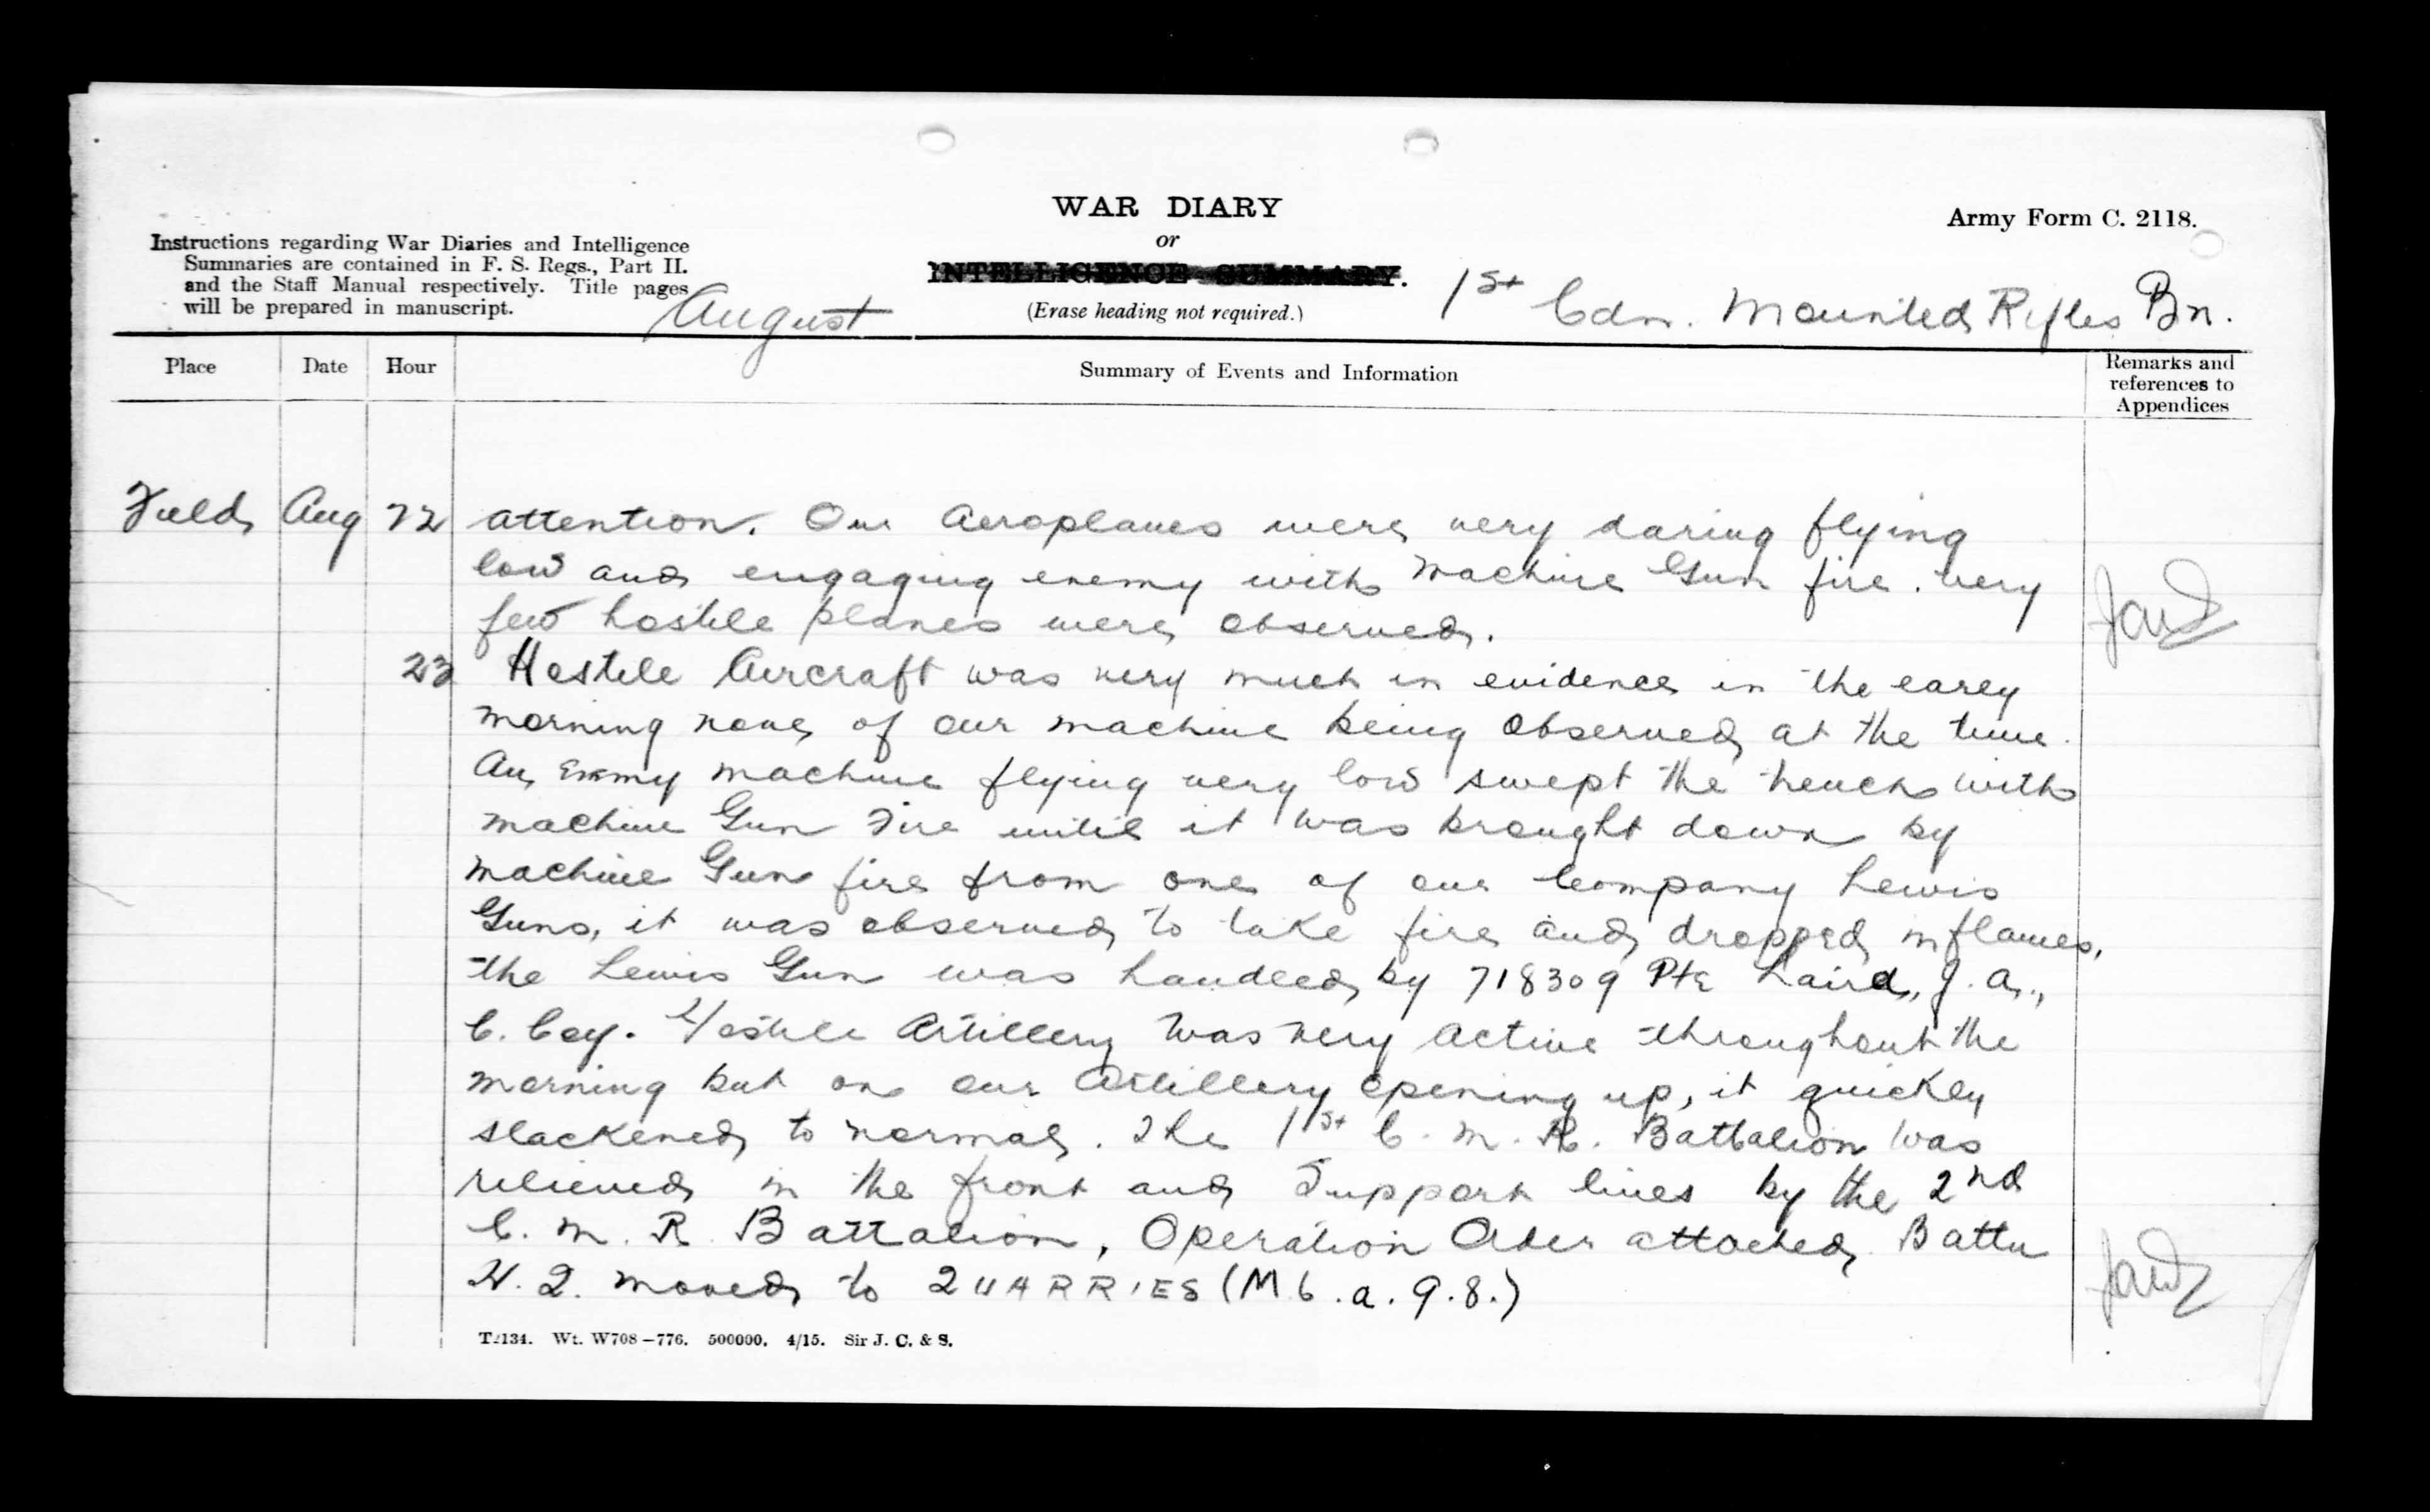 WAR DIARY
or
INTELLIGENCE SUMMARY.
(Erase heading not required.)
Army Form C. 2118.
Instructions regarding War Diaries and Intelligence
Summaries are contained in F. S. Regs., Part II.
and the Staff Manual respectively. Title pages
will be prepared in manuscript.
August
1st Cdn. Mounted Rifles Bn.
Place Date Hour Summary of Events and Information Remarks and
references to
Appendices
Field Aug 22 attention. Our Aeroplanes were very daring flying
low and engaging enemy with Machine Gun fire. very
few hostile planes were observed.
23 Hostile Aircraft was very much in evidence in the early
morning none of our machine being observed at the time.
An Enemy machine flying very low swept the trench with
machine Gun Fire until it was brought down by
machine Gun fire from one of our Company Lewis
Guns, it was observed to take fire and dropped in flames,
the Lewis Gun was handled by 718309 Pte Laird, J. A.,
C. Coy. Hostile Artillery was very active throughout the
morning but on our Artillery opening up, it quickly
slackened to normal. The 1st C. M. R. Battalion was
relieved in the front and Support lines by the 2nd
C. M. R. Battalion, Operation Order attached. Battn
H. Q. moved to QUARRIES (M6.a.9.8.)
T2134. Wt. W708–776. 500000. 4/15. Sir J. C. & S.